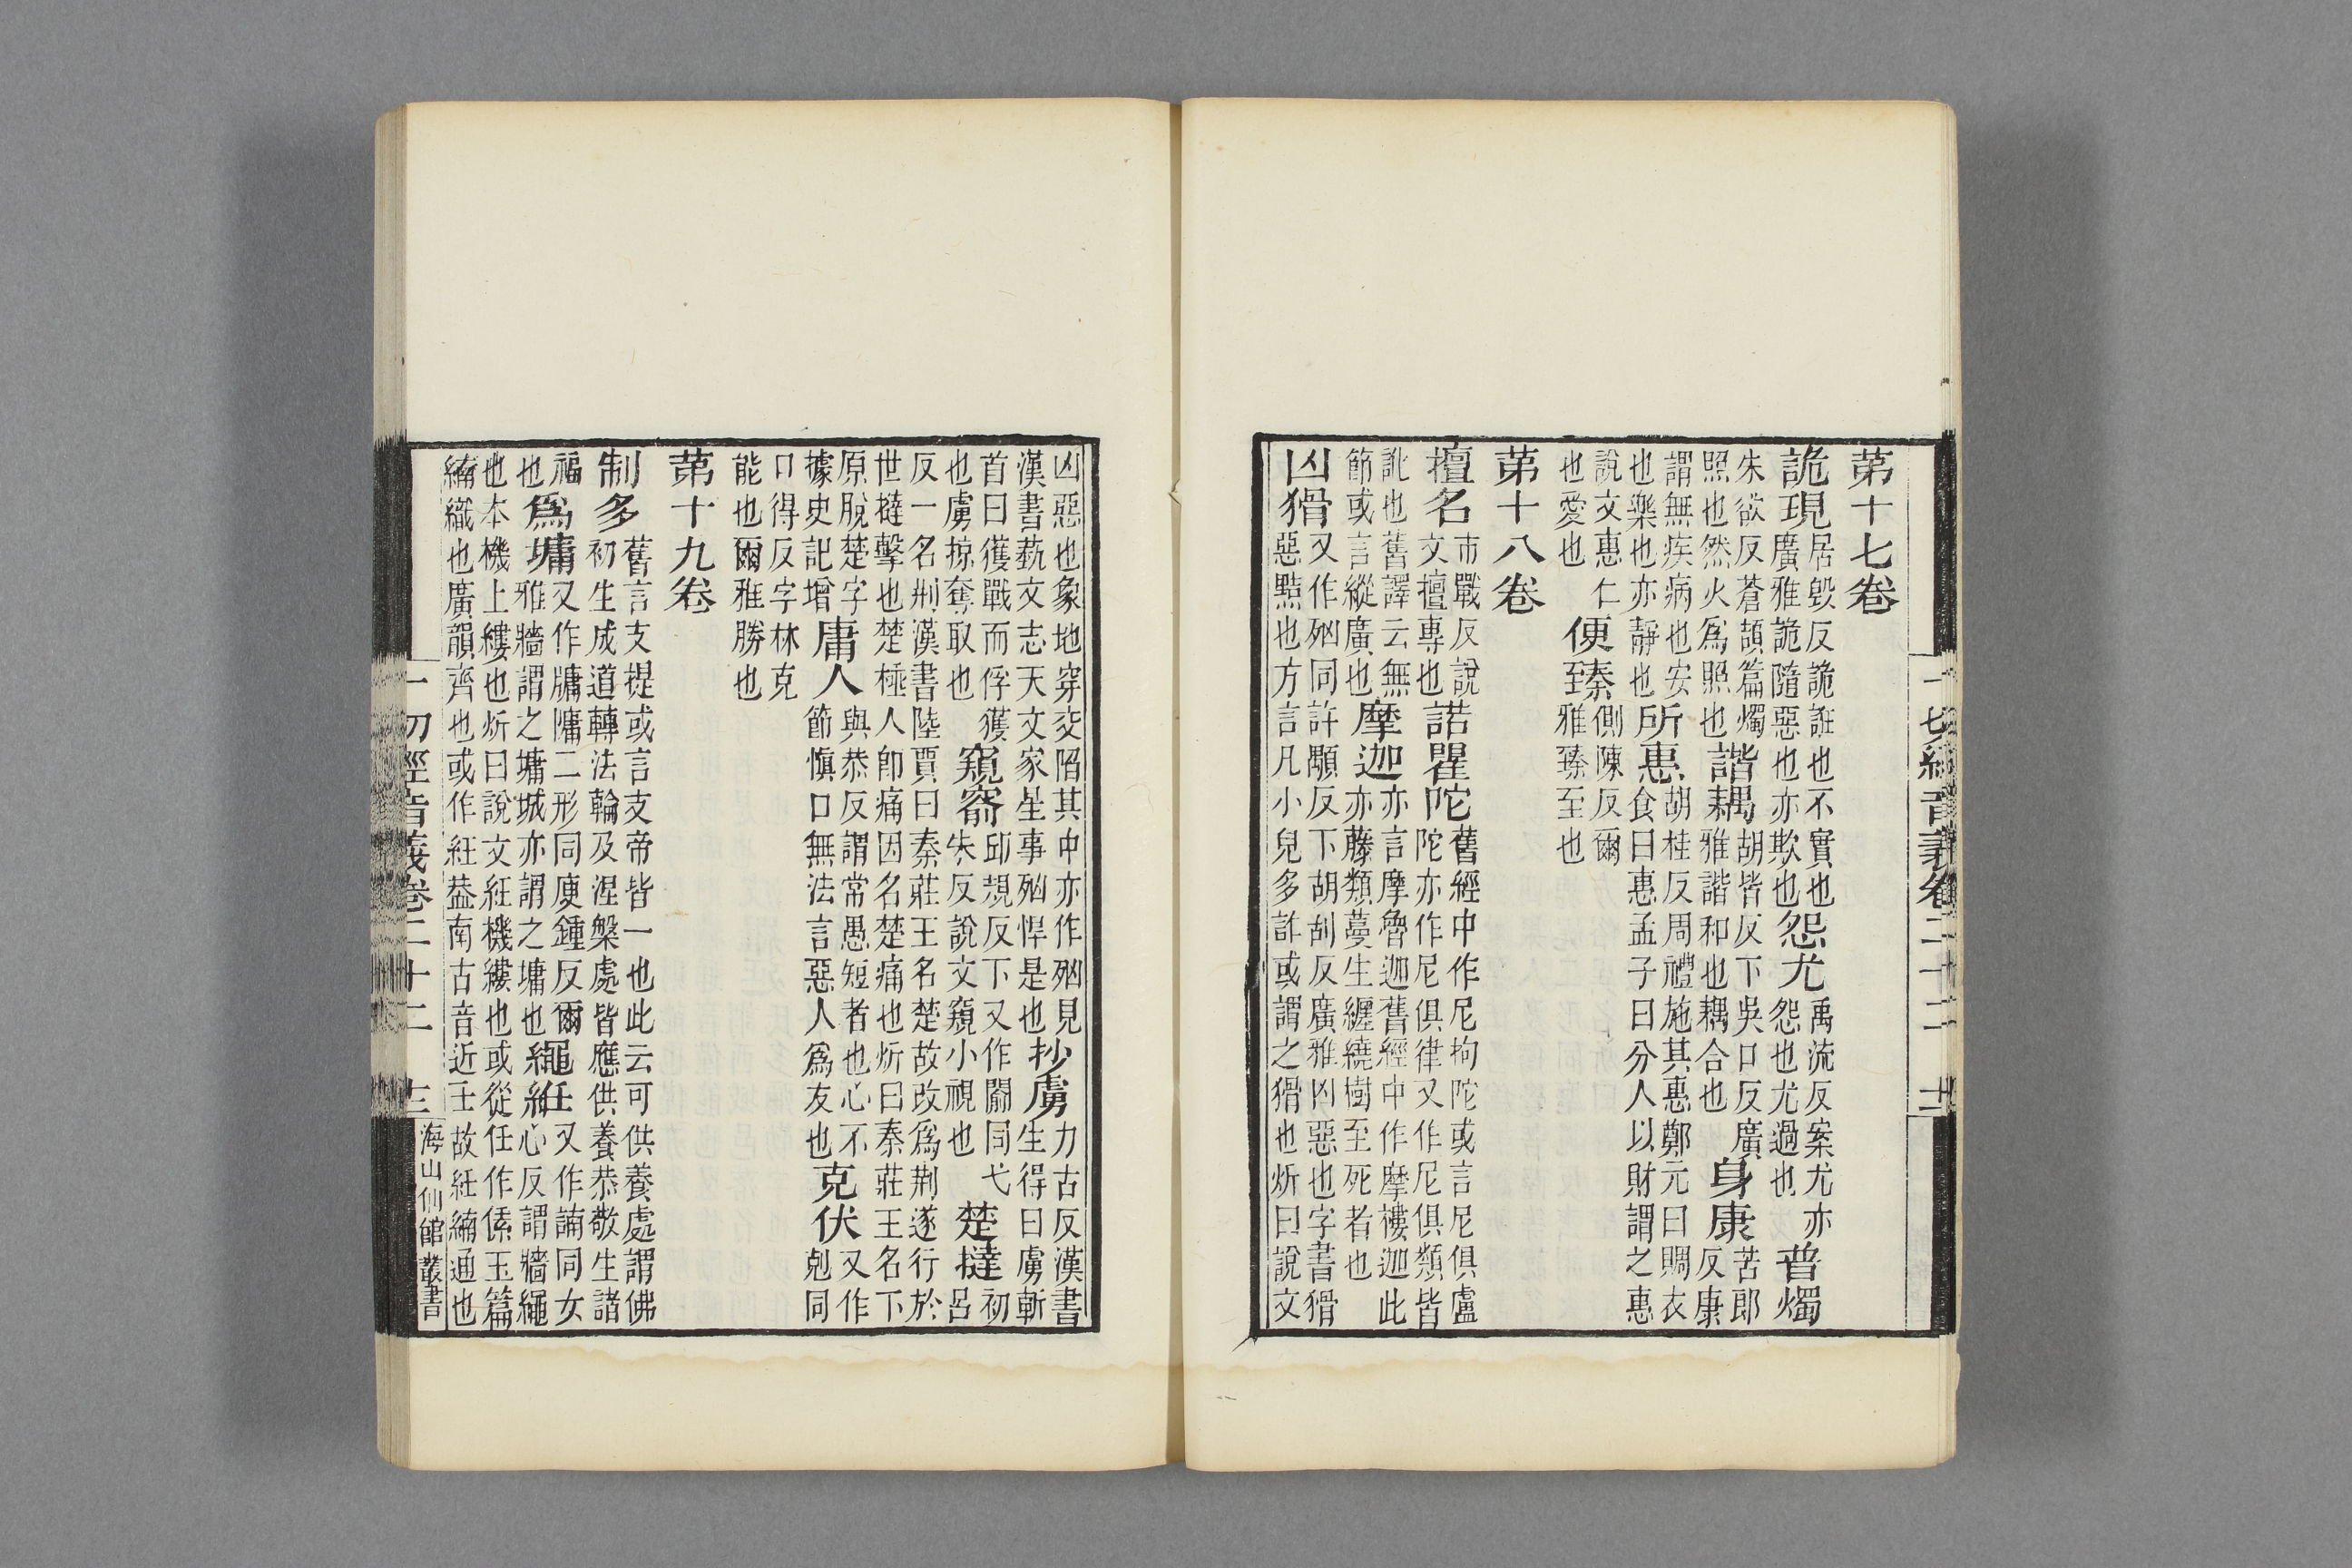 第十七卷
詭現居毀反詭誑也不實也廣雅詭隨惡也亦欺也怨尤禹流反案尤亦怨也尤過也普燭
朱欲反蒼頡篇燭照也然火爲照也諧耦胡皆反下吳口反廣雅諧和也耦合也身康苦郎反康
謂無疾病也安也樂也亦靜也所惠胡桂反周禮施其惠鄭元曰賙衣食曰惠孟子曰分人以財謂之惠
說文惠仁也愛也便臻側陳反爾雅臻至也
第十八卷
擅名市戰反說文擅專也諾瞿陀舊經中作尼拘陀或言尼俱盧陀亦作尼俱律又作尼俱類皆
訛也舊譯云無節或言縱廣也摩迦亦言摩魯迦舊經中作摩樓迦此亦藤類蔓生纏繞樹至死者也
凶猾又作同許顒反下胡刮反廣雅凶惡也字書猾惡黠也方言凡小兒多詐或謂之猾也炘曰說文
一切經音義卷二十二 十二
凶惡也象地穿交陷其中亦作見漢書蓺文志天文家星事悍是也抄虜力古反漢書生得曰虜斬
首曰獲戰而俘獲也虜掠奪取也窺窬邱規反下又作同弋朱反說文窺小視也楚撻初呂
反一名荊漢書陸賈曰秦莊王名楚故改爲荊遂行於世撻擊也楚極人卽痛因名楚痛也炘曰秦莊王名下
原脫楚字據史記增庸人與恭反謂常愚短者也心不節愼口無法言惡人爲友也克伏又作剋同
口得反字林克能也爾雅勝也
第十九卷
制多舊言支提或言支帝皆一也此云可供養處謂佛初生成道轉法輪及涅槃處皆應供養恭敬生諸
福也爲墉又作二形同庾鍾反爾雅牆謂之墉城亦謂之墉也繩絍又作䋻同女心反謂牆繩
也本機上縷也炘曰說文紝機縷也或從任作絍玉篇䋻織也廣韻齊也或作紝葢南古音近壬故紝䋻通也
一切經音義卷二十二 十三 海山仙館叢書